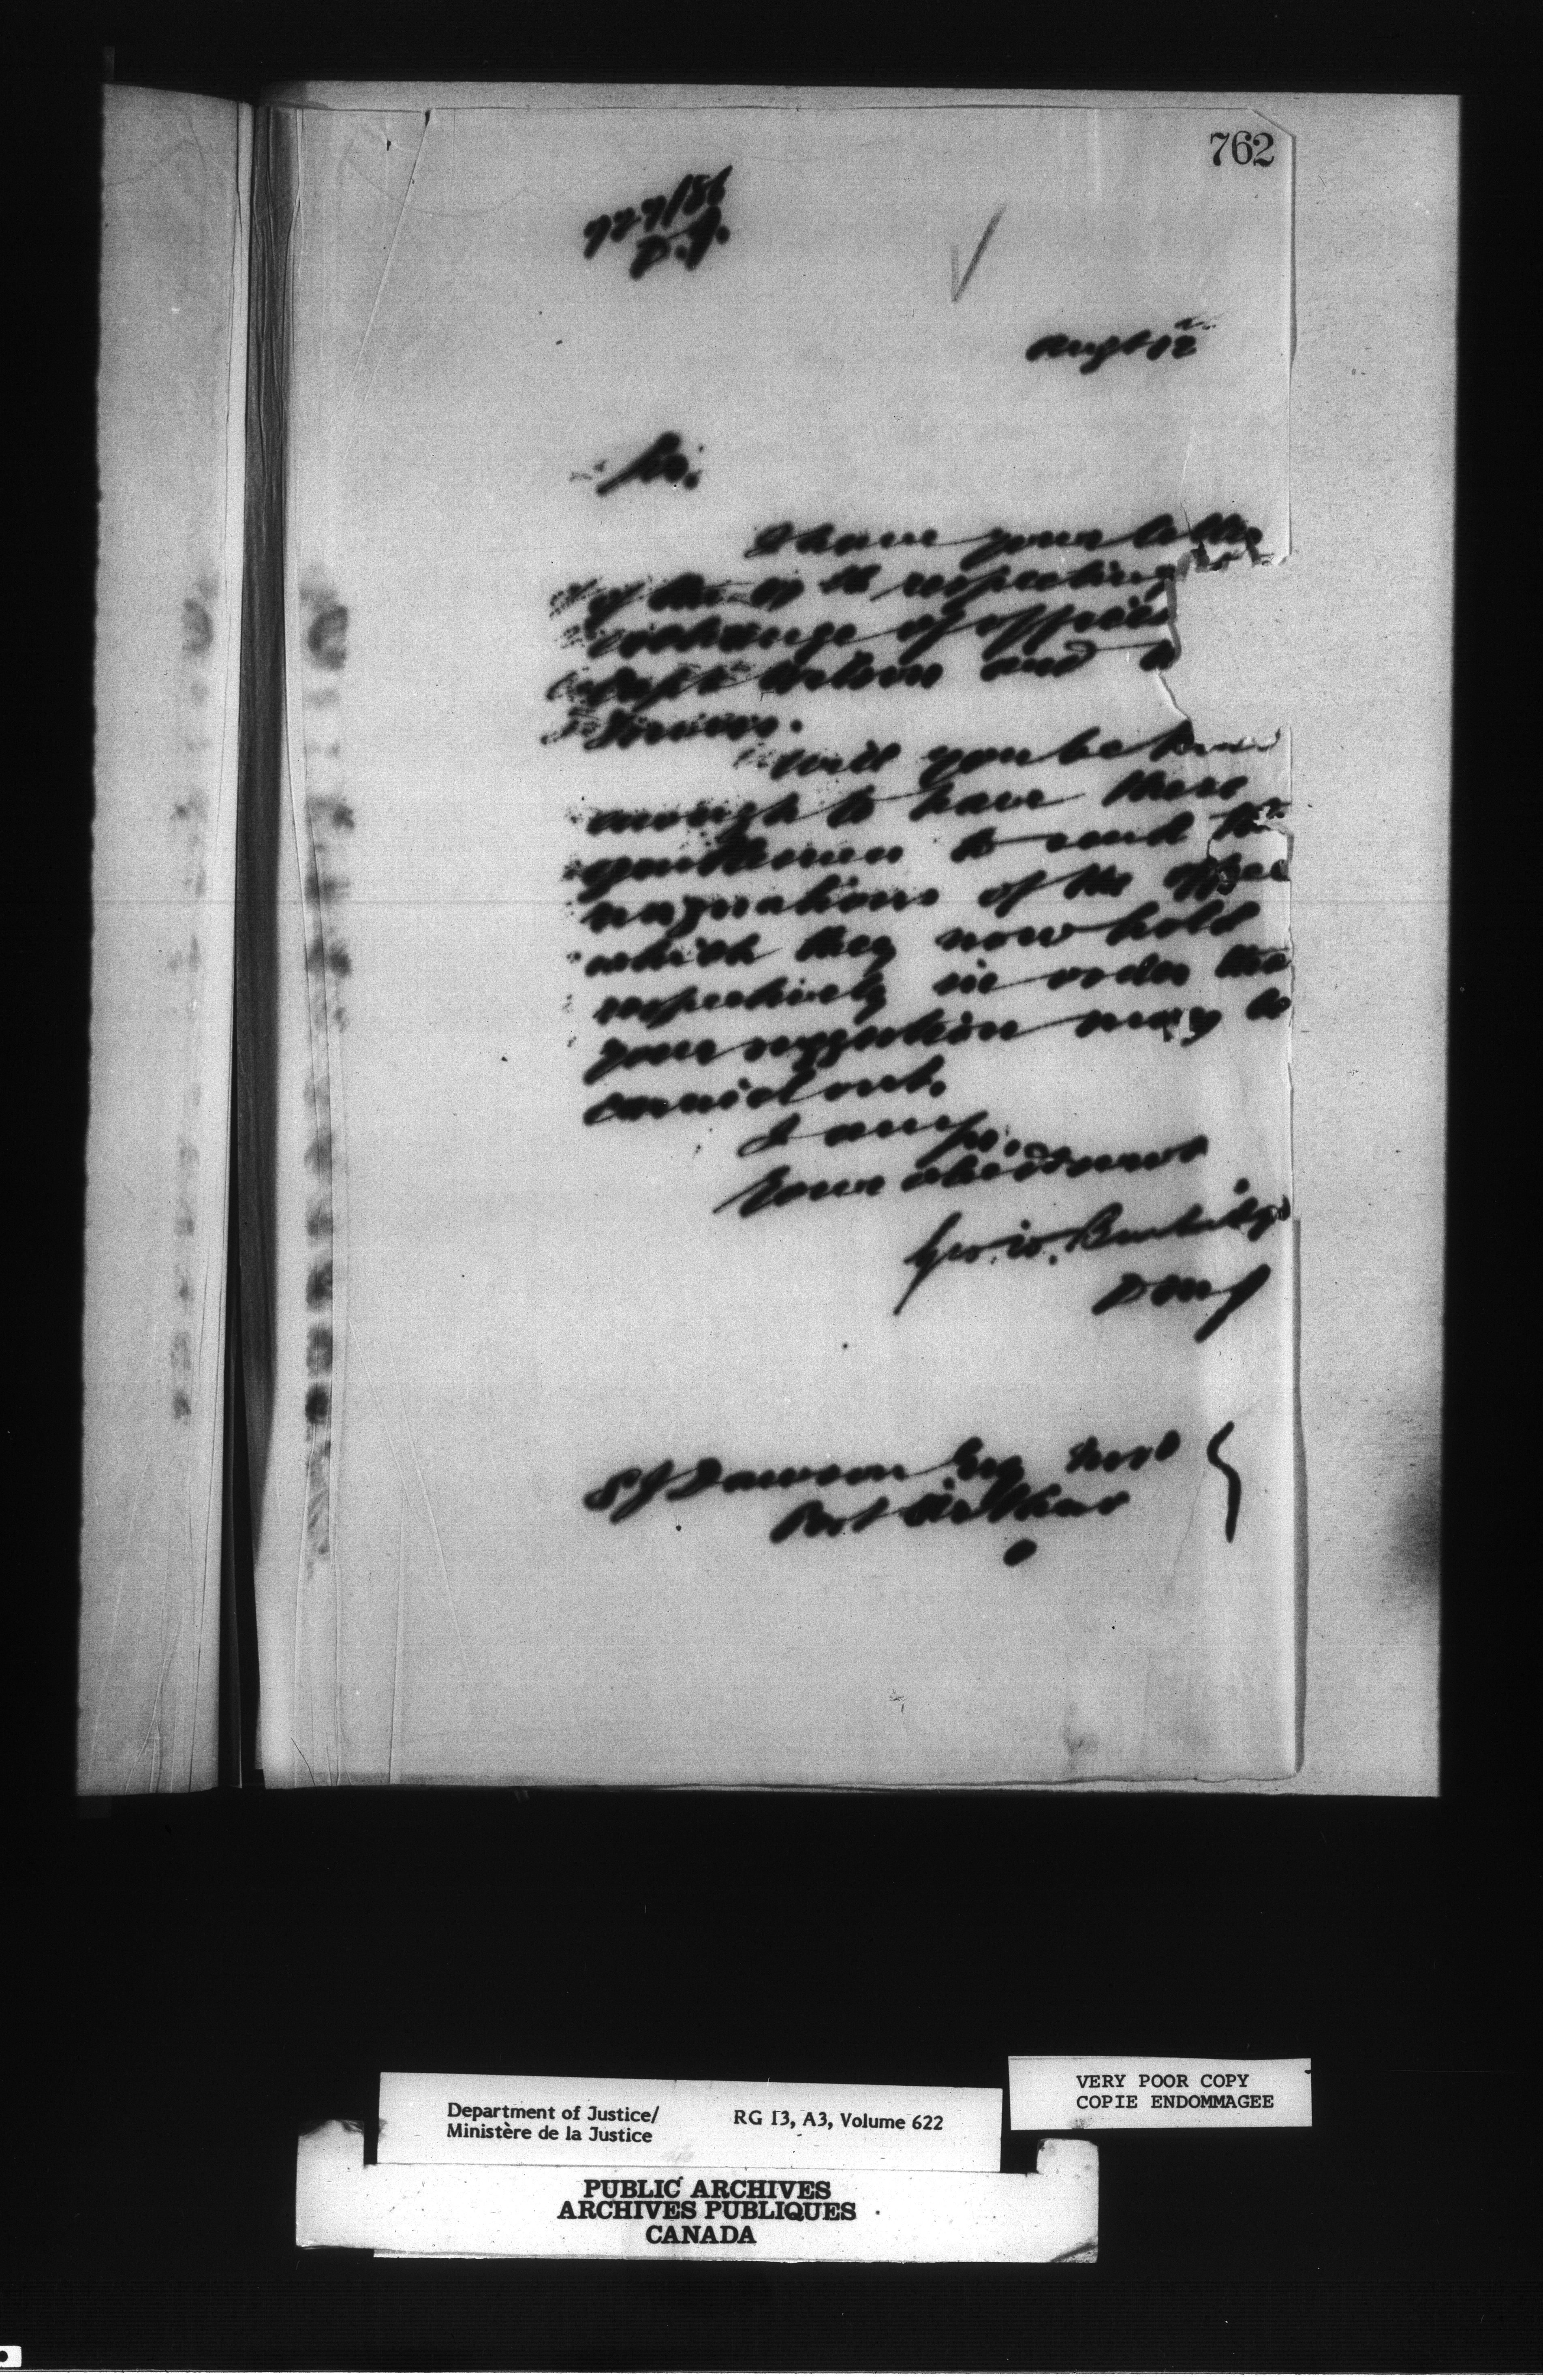 762
727/86
D.J.
Augt 12th
Sir,
I have your letter
of the 9th respecting
exchange of offices
Capt Wilson and
will you be kind
enough to have these
gentlemen to send their
resignations of the office
which they now hold
respectively in order that
your suggestion may be
carried out.
I am Sir,
Your obed Servt
Geo. W. Burbidge
DMJ
S J Dawson Esq M P
Port Arthur
O
Department of Justice/ RG 13, A3, Volume 622
Ministère de la Justice
VERY POOR COPY
COPIE ENDOMMAGEE
PUBLIC ARCHIVES
ARCHIVES PUBLIQUES
CANADA